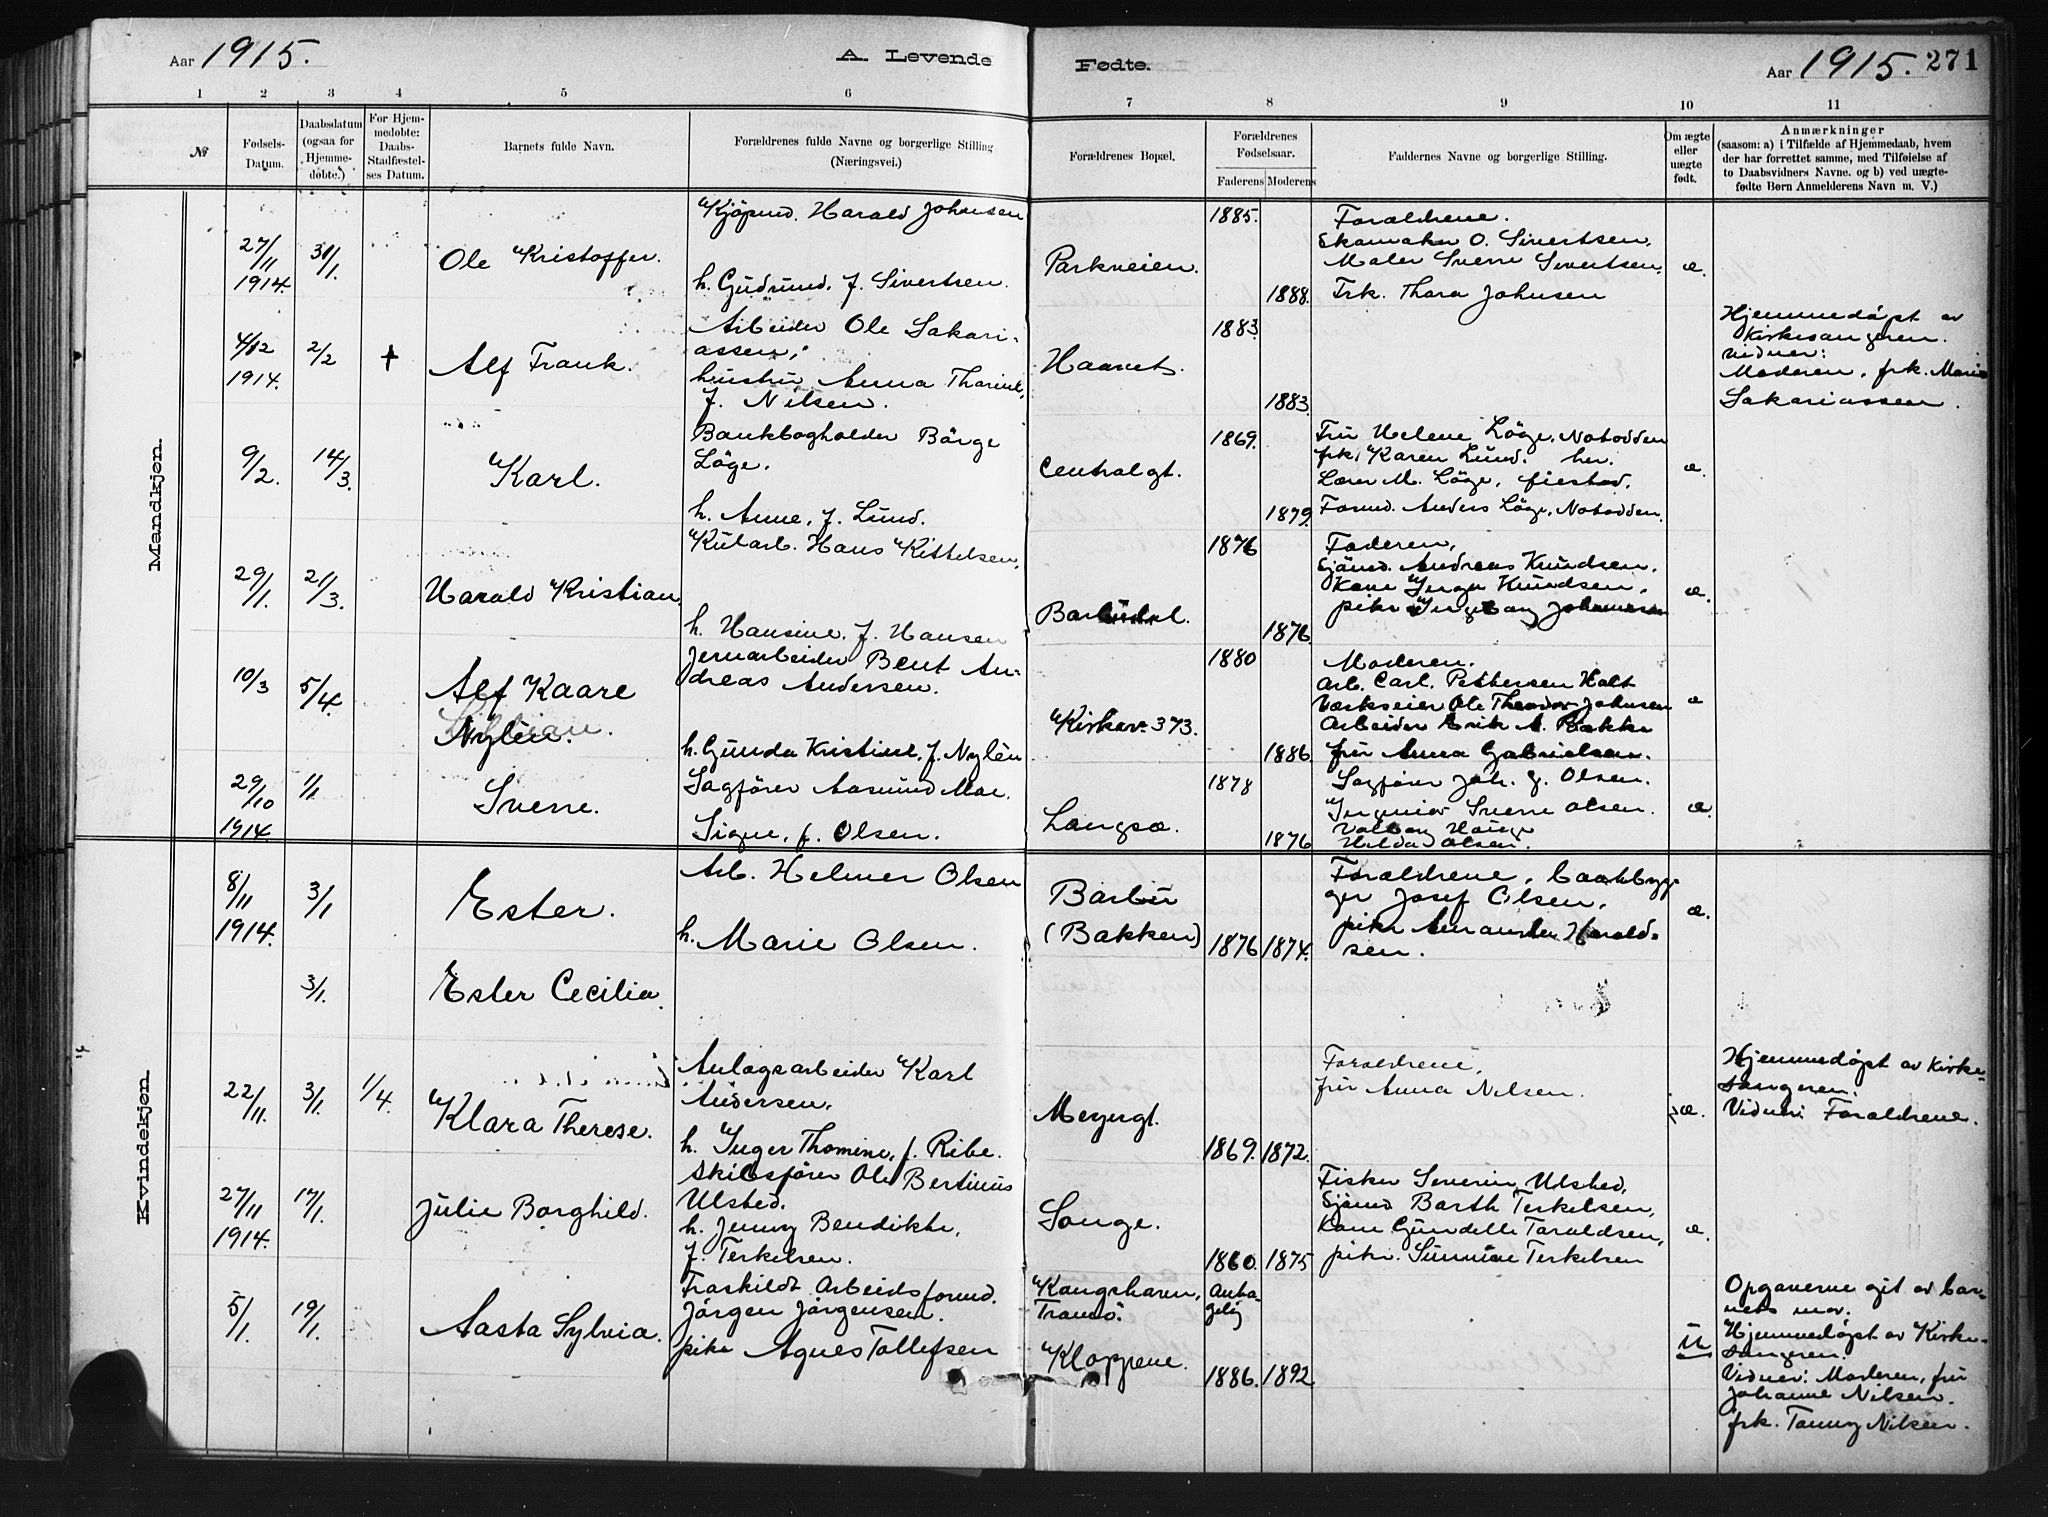 Aar 1915.
A. Levende
Fødte.
Aar 1915. 271
1 2 3 4 5 6 7 8 9 10 11
№
Fødsels-
Datum.
Daabsdatum
(ogsaa for
Hjemme-
døbte.)
For Hjem-
medøbte:
Daabs-
Stadfæstel-
ses Datum.
Barnets fulde Navn.
Forældrenes fulde Navne og borgerlige Stilling
(Næringsvei.)
Forældrenes Bopæl.
Forældrenes
Fødselsaar.
Faderens Moderens
Faddernes Navne og borgerlige Stilling.
Om ægte
eller
uægte
født.
Anmærkninger
(saasom: a) i Tilfælde af Hjemmedaab, hvem
der har forrettet samme, med Tilføielse af
to Daabsvidners Navne. og b) ved uægte-
fødte Børn Anmelderens Navn m. V.)
Mandkjøn.
27/11
1914.
31/1.
Ole Kristoffer.
Kjøpmd. Harald Johansen
h. Gudrund, f. Sivertsen.
Parkveien.
1885.
1888.
Foraldrene.
Skomaker O. Sivertsen,
Maler Sverre Sivertsen,
Frk. Thora Johnsen
æ.
4/12
1914.
2/2
+
Alf Frank.
Arbeider Ole Sakari-
assen,
hustru Anna Thorine,
f. Nilsen.
Haavet.
1883.
1883.
Hjemmedøpt av
Kirkesangeren.
Vidner:
Moderen, frk. Marie
Sakariassen.
9/2.
14/3.
Karl.
Bankbogholder Börge
Löge.
h. Anne, f. Lund.
Centralgt.
1869.
1879.
Fru Helene Löge, Notodden
frk. Karen Lund. her.
Lærer M. Löge, fiestad,
Formd. Anders Löge, Notodden.
æ.
29/1.
21/3.
Harald Kristian.
Kularb. Hans Kittelsen,
h. Hansine, f. Hansen
1876
1876
Faderen,
Sjömd. Andreas Knudsen,
Kone Inga Knudsen,
pike Ingeborg Johannesen
æ.
10/3
5/4.
Alf Kaare
Nylén.
Jernarbeider Bent An-
dreas Andersen.
h. Gunda Kristine, f. Nylén
Kirkev. 373.
1880
1886
Moderen.
Arb. Carl. Pettersen Holt
Værkseier Ole Theodor Johnsen
Arbeider Erik A. Bakke
fru Anna Gabrielsen.
æ
29/10
1914.
1/1
Sverre.
Sagförer Aasmund Moe.
Signe, f. Olsen.
Langsæ.
1878
1876
Sagförer Joh. G. Olsen.
Ingeniör Sverre Olsen.
Valborg Hauge
Hilda Olsen.
æ.
Kvindekjøn.
8/11
1914.
3/1
Ester.
Arb. Helmer Olsen
h. Marie Olsen.
Barbu
(Bakken)
1876 1874.
Foraldrene, baatbyg-
ger Josef Olsen,
pike Amanda Harald-
sen.
æ.
3/1.
Ester Cecilia.
22/11.
3/1.
1/4.
Klara Therese.
Anlægsarbeider Karl
Andersen,
h. Inger Thomine, f. Ribe.
Meyergt.
1869. 1872.
Foraldrene,
fru Anna Nilsen.
æ.
Hjemmedøpt av Kirke-
sangeren.
Vidner: Foraldrene.
27/11
1914.
17/1.
Julie Borghild.
Skibsförer Ole Bertinius
Ulsted.
h. Jenny Bendikte,
f. Terkelsen.
Songe.
1860. 1875
Fisker Severin Ulsted,
Sjömd Barth Terkelsen,
Kone Gundelle Taraldsen,
pike. Sunnive Terkelsen
æ.
5/1.
19/1.
Aasta Sylvia.
Fraskildt Arbeidsformd.
Jörgen Jörgensen.
pike Agnes Tollefsen
Kongshavn,
Tromö.
Kloppene.
Antagelig
1886. 1892
u
Opgaverne git av bar-
nets mor.
Hjemmedøpt av Kirke-
sangeren.
Vidner: Moderen, fru
Johanne Nilsen,
frk. Tanny Nilsen.